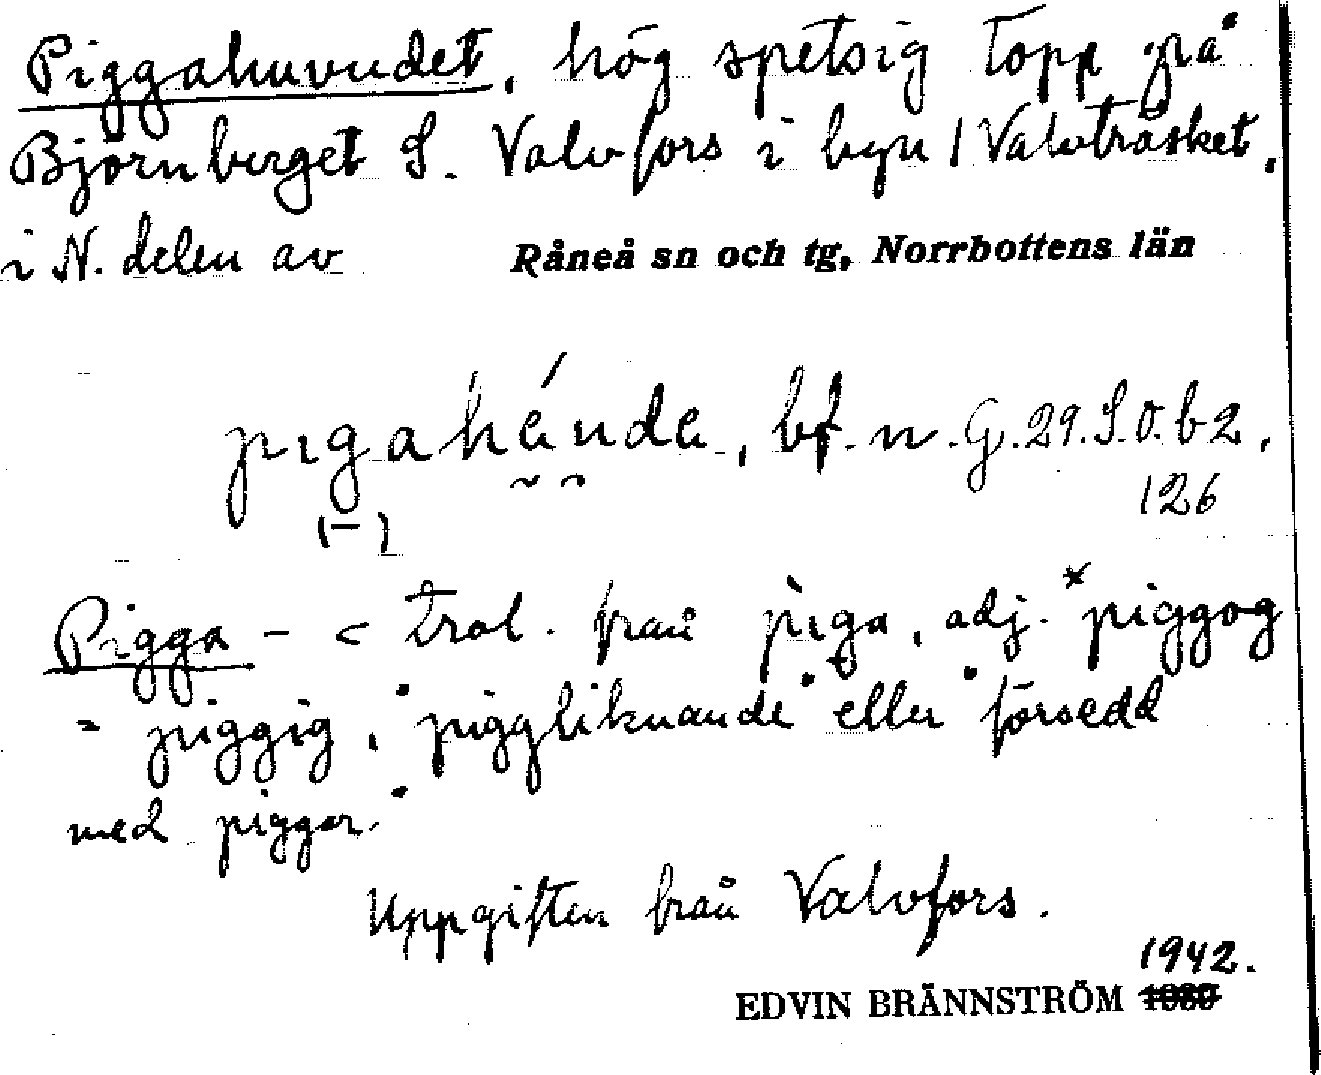 Piggahuvudet, hög spetsig topp på
Björnberget S. Valvfors i byn / Valvträsket,
i N. delen av Råneå sn och tg, Norrbottens län
pigahä́ndä, bf. n. G.29.S.O. b2,
(-) 126
Pigga - < trol. från pìga, adj. *piggog
= piggig, "piggliknande" eller "försedd
med piggar."
Uppgiften från Valvfors.
1942.
EDVIN BRÄNNSTRÖM 1930